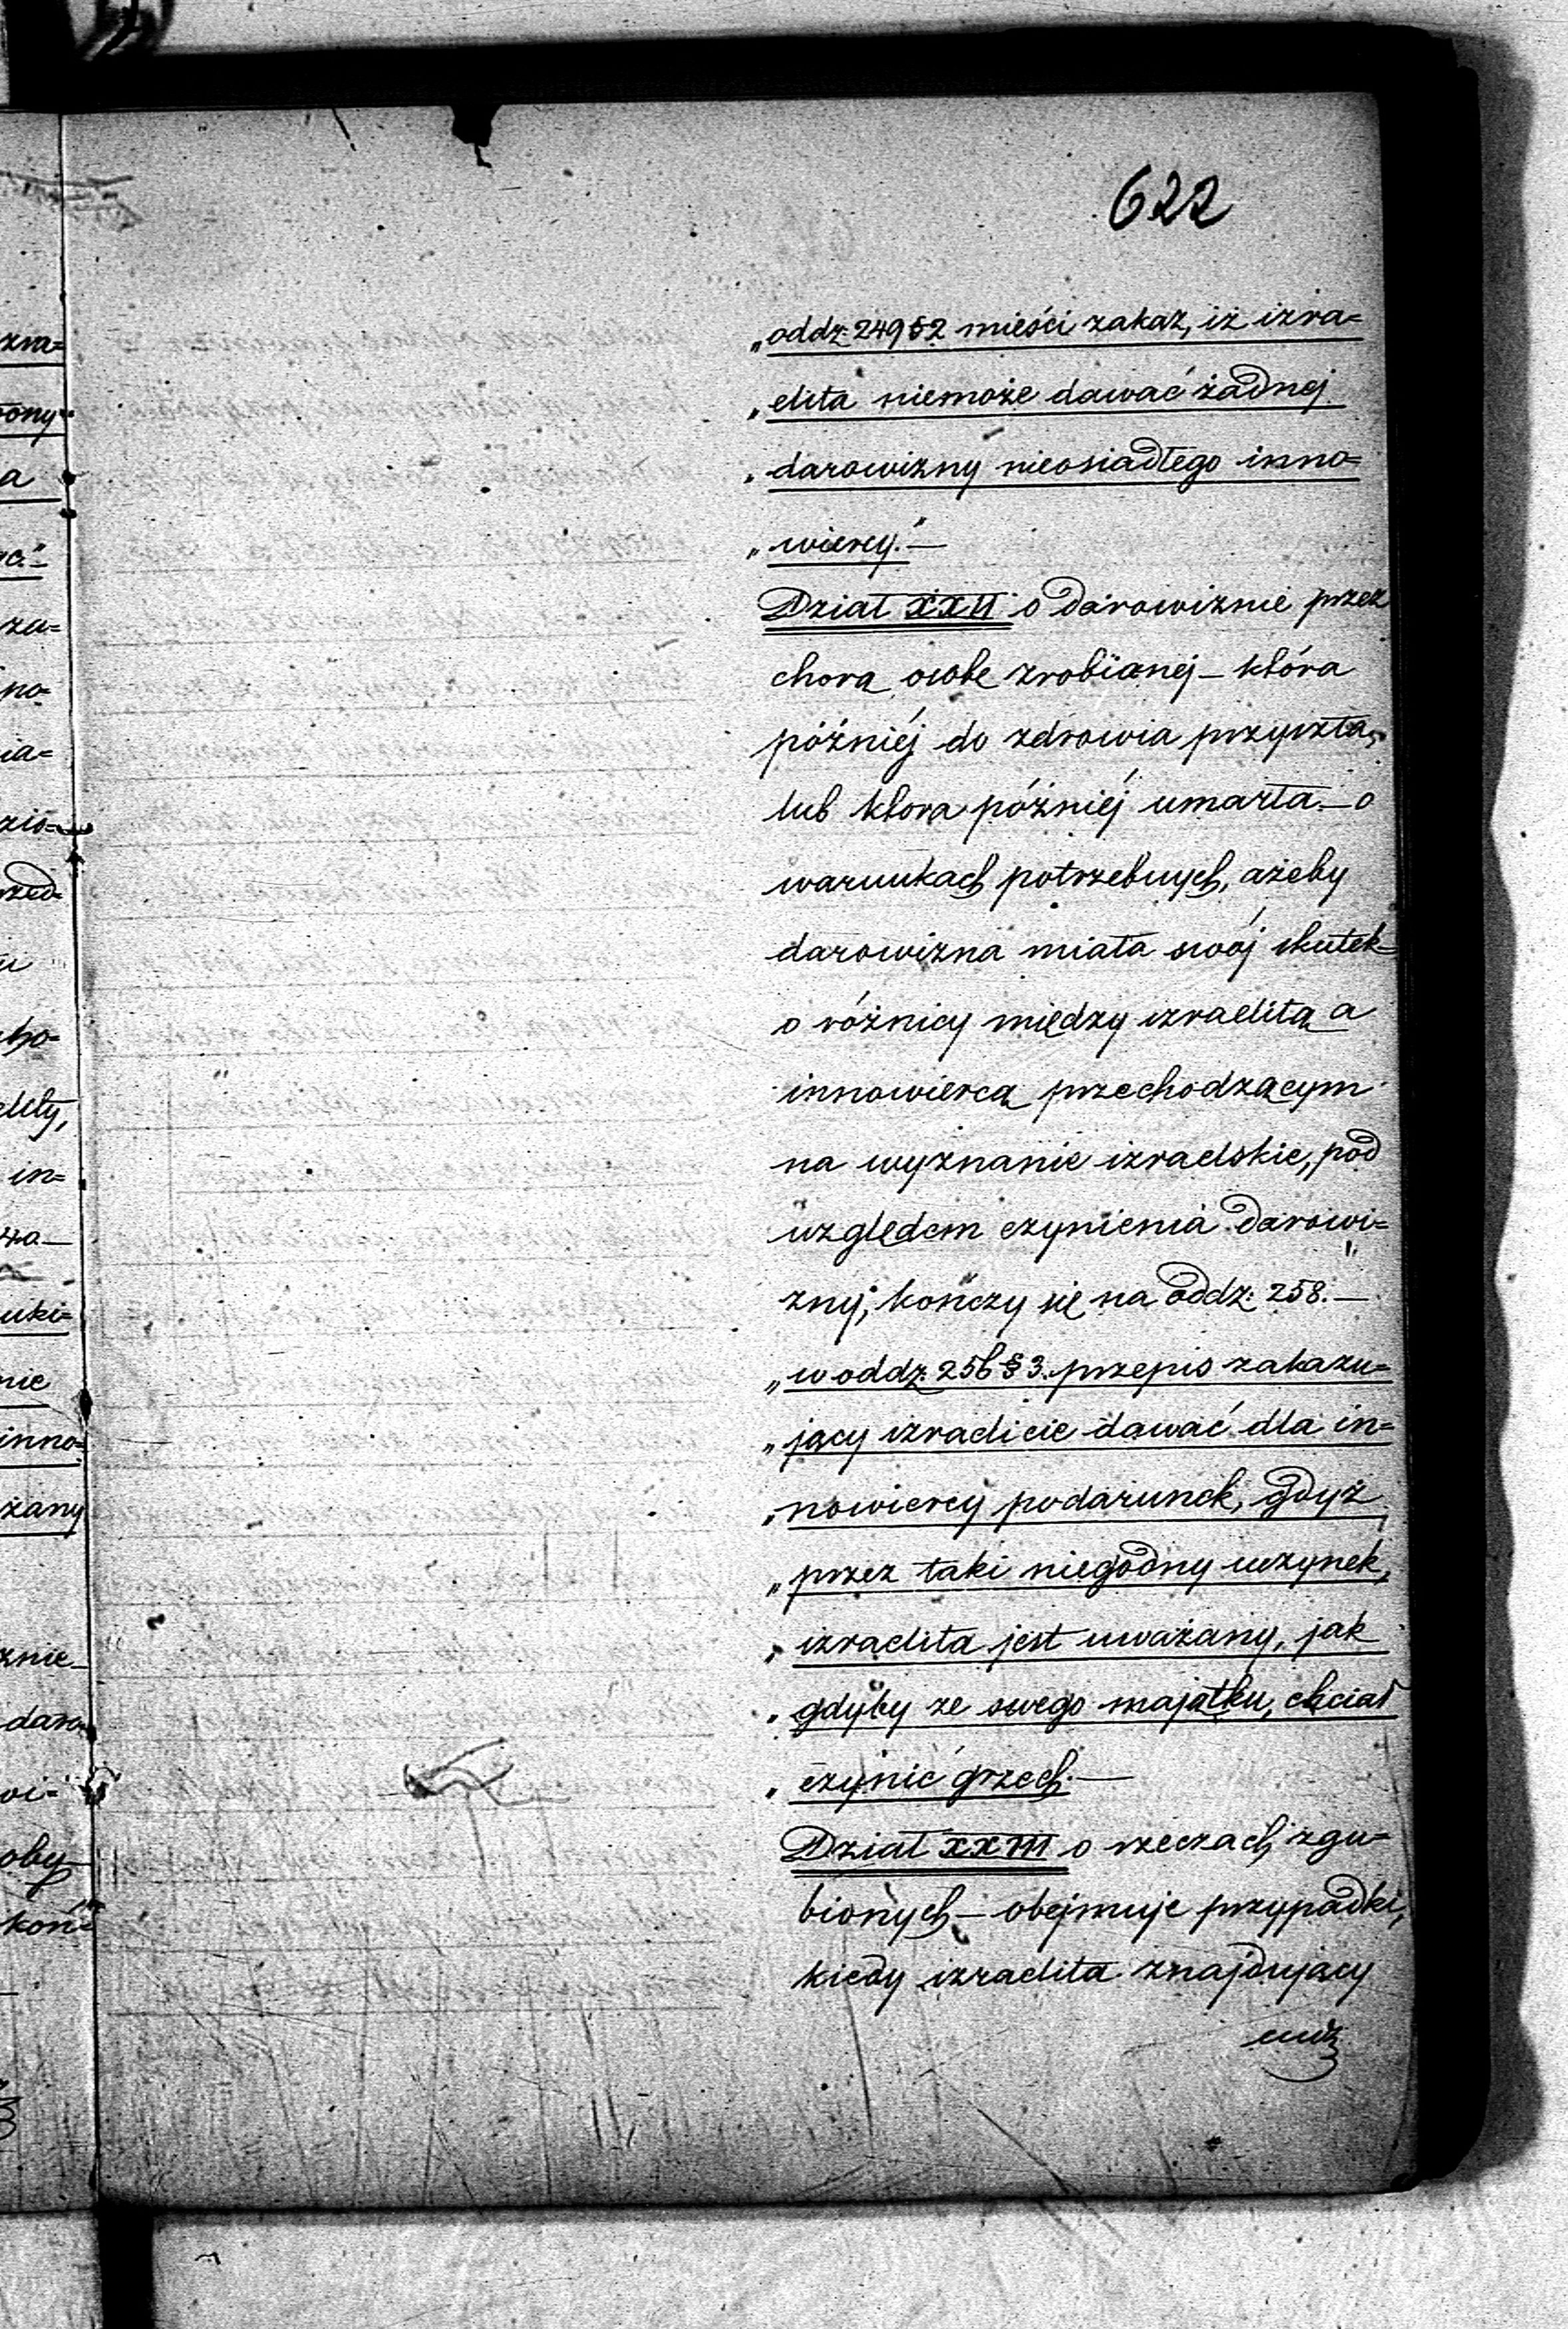 622
„oddz: 249 § 2 mieści zakaz, iż izra=
„elita niemoże dawać żadnej
„darowizny nieosiadłego inno=
„wiercy.”—
Dział XXII o darowiznie przez
chorą osobe zrobionej — która
późniéj do zdrowia przyszła,
lub która późniéj umarła. — o
warunkach potrzebnych, ażeby
darowizna miała swój skutek —
o różnicy między izraelitą a
innowiercą przechodzącym
na wyznanie izraelskie, pod
względem czynienia darowi=
zny; kończy się na oddz: 258. —
„w oddz: 256 § 3. przepis zakazu=
„jący izraelicie dawać dla in=
„nowiercy podarunek, gdyż
„przez taki niegodny uczynek,
„izraelita jest uważany, jak
„gdyby ze swego majątku, chciał
„czynić grzech. —
Dział XXIII o rzeczach zgu=
bionych — obejmuje przypadki,
kiedy izraelita znajdujący